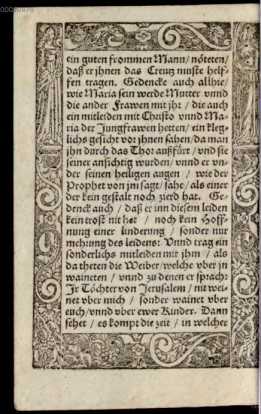 ein guten frommen Mann/ nöteten/
daß er jhnen das Creutz muste helf-
fen tragen. Gedencke auch allhie/
wie Maria sein werde Mutter vnnd
die ander Frawen mit jhr / die auch
ein mitleiden mit Christo vnnd Ma-
ria der Jungfrawen hetten/ ein kleg-
lichs gesicht vor jhnen sahen/ da man
jhn durch das Thor außfürt / vnd sie
seiner ansichtig wurden/ vnnd er vn-
der seinen heiligen augen / wie der
Prophet von jm sagt/ sahe/ als einer
der kein gestalt noch zierd hat. Ge-
denck auch / daß er inn diesem leiden
kein trost nit het / noch kein Hoff-
nung einer linderung / sonder nur
mehrung des leidens: Vnnd trag ein
sonderlichs mitleiden mit jhm / als
da theten die Weiber/ welche vber jn
waineten / vnnd zu denen er sprach:
Jr Töchter von Jerusalem / nit wei-
net vber mich / sonder wainet vber
euch/ vnnd vber ewer Kinder. Dann
sehet / es kompt die zeit / in welcher